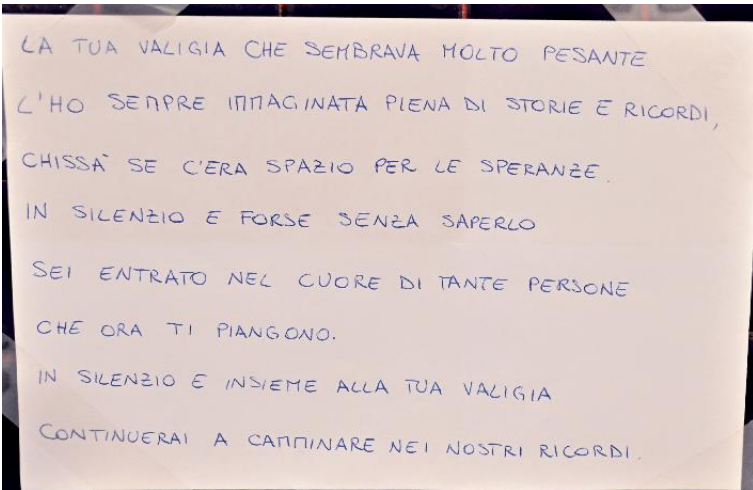 LA TUA VALIGIA CHE SEMBRAVA MOLTO PESANTE
L'HO SEMPRE IMMAGINATA PIENA DI STORIE E RICORDI,
CHISSÀ SE C'ERA SPAZIO PER LE SPERANZE.
IN SILENZIO E FORSE SENZA SAPERLO
SEI ENTRATO NEL CUORE DI TANTE PERSONE
CHE ORA TI PIANGONO.
IN SILENZIO E INSIEME ALLA TUA VALIGIA
CONTINUERAI A CAMMINARE NEI NOSTRI RICORDI.